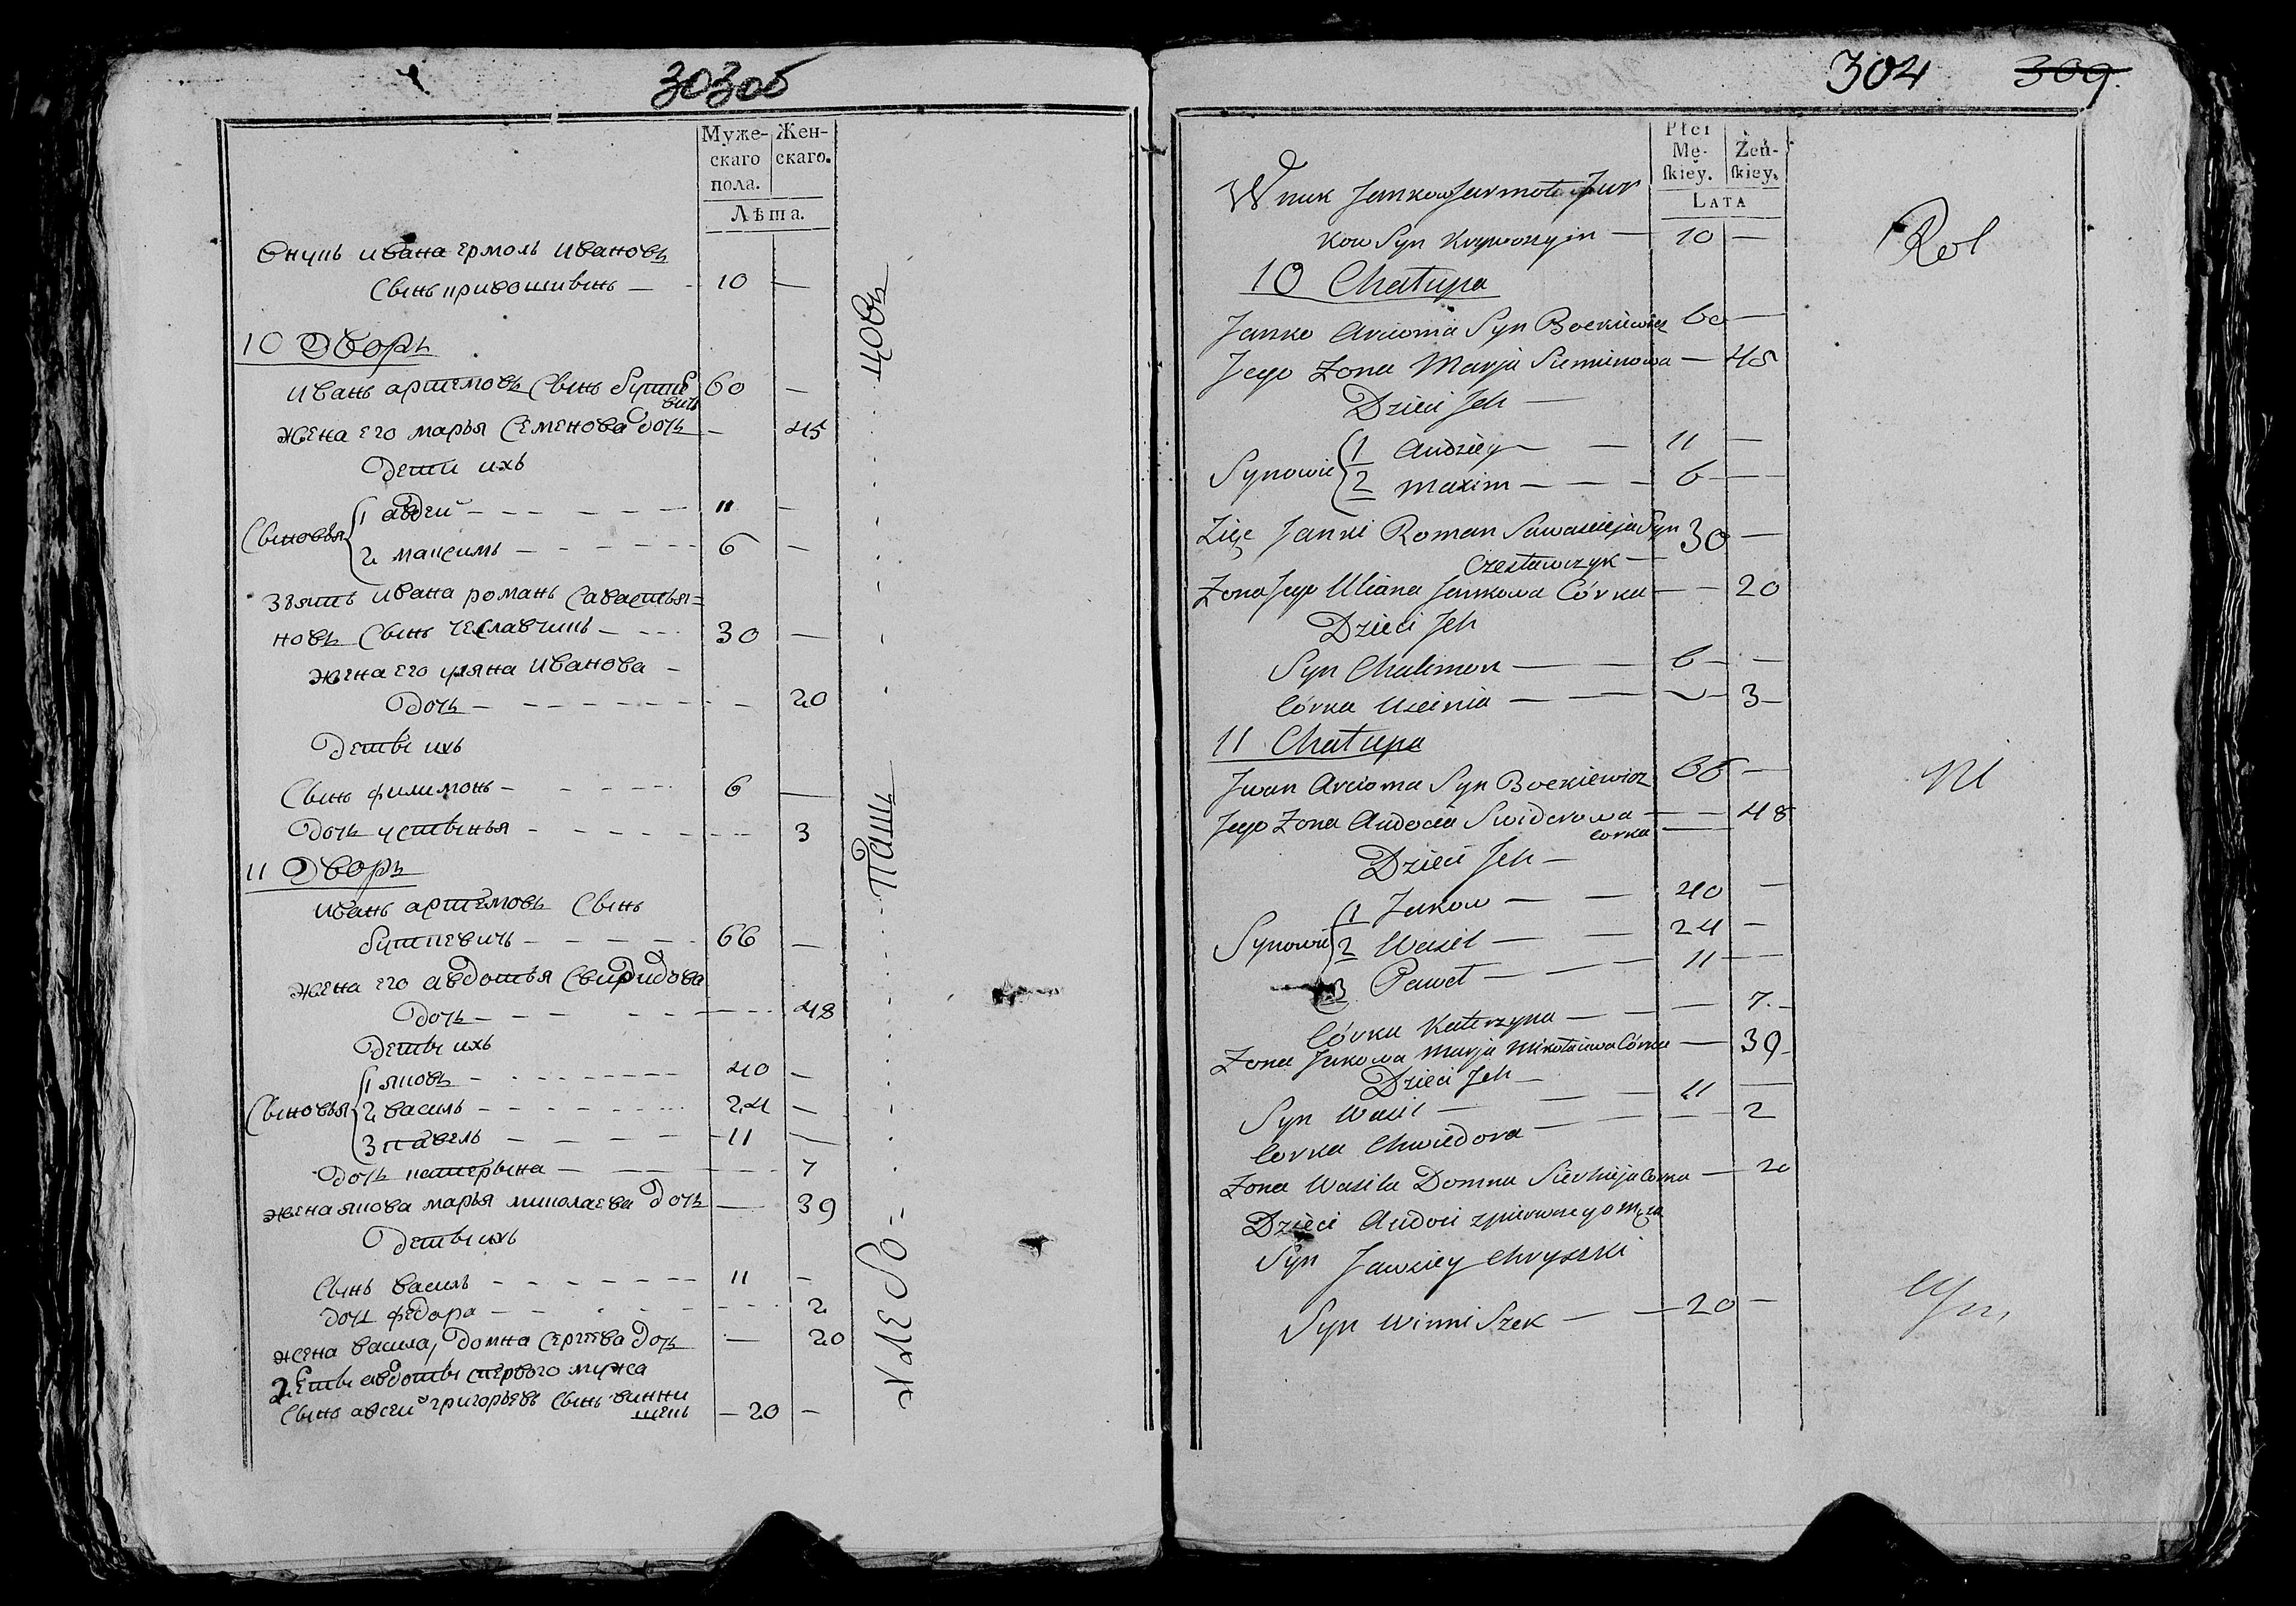 303об
Муже- Жен-
скаго скаго.
пола.
Лѣта.
Внукъ ивана ермолъ ивановъ
Сынъ приволшивенъ — 10 —
10 Дворъ
иванъ артемовъ Сынъ бутке
вичъ 60 —
жена его марья Семенова дочь — 45
Дети ихъ
Сыновья 1 авдей — 11 —
2 максимъ — 6 —
Зять ивана романъ Савастья=
новъ Сынъ чеславчикъ — 30 —
жена его уляна иванова —
дочь — 20
Деты ихъ
Сынъ филимонъ — 6 —
дочь устынья — 3
11 Дворъ
иванъ артемовъ Сынъ
буткевичъ — 66 —
жена его авдотья Свиридова
дочь — 48
Деты ихъ
Сыновья 1 яковъ — 40 —
2 василь — 24 —
3 павелъ — 11 —
дочь катерына — 7
жена якова марья миколаева дочь — 39
Деты ихъ
Сынъ василь — 11 —
дочь федора — 2
жена васила, домна сергеева дочь — 20
Деты авдоты спервого мужа
Сынъ авсей григорьевъ Сынъ винни
щекъ — 20 —
хлебо=
пашъ
цовъ
304 309.
Płci
Mę- Żeń-
skiey. skiey.
LATA
Wnuk Jankow Jarmoła Jur
kow Syn Krywoszyin — 10 —
10 Chałupa
Janko Arcioma Syn Bockiewicz 60 —
Jego Zona Marja Siemionowa — 45
Dzieci Jch —
Synowie 1 Audziey — 11 —
2 Maxim — 6 —
Zięć Janki Roman Sawaścieja Syn
Czesławczyk — 30 —
Zona Jego Uliana Jankowa Córka — 20
Dzieci Jch
Syn Chalimon — 6 —
Córka Uscinia — 3 —
11 Chałupa
Jwan Arcioma Syn Bockiewicz 66 —
Jego Zona Audocia Swiderowa — 48
corka —
Dzieci Jch —
Synowie 1 Jakow — 40 —
2 Wasil — 24 —
3 Paweł — 11 —
Córka Katerzyna — 7. —
Zona Jakowa Marja Mikołaiowa Córka — 39 —
Dzieci Jch —
Syn Wasil — 11 —
Corka Chwiedora — 2
Zona Wasila Domna Sierhieja Corka — 20
Dzieci Audoci zpierwszego Męża
Syn Jawsiey Chryszki
Syn WinniSzek — 20 —
Rol
ni